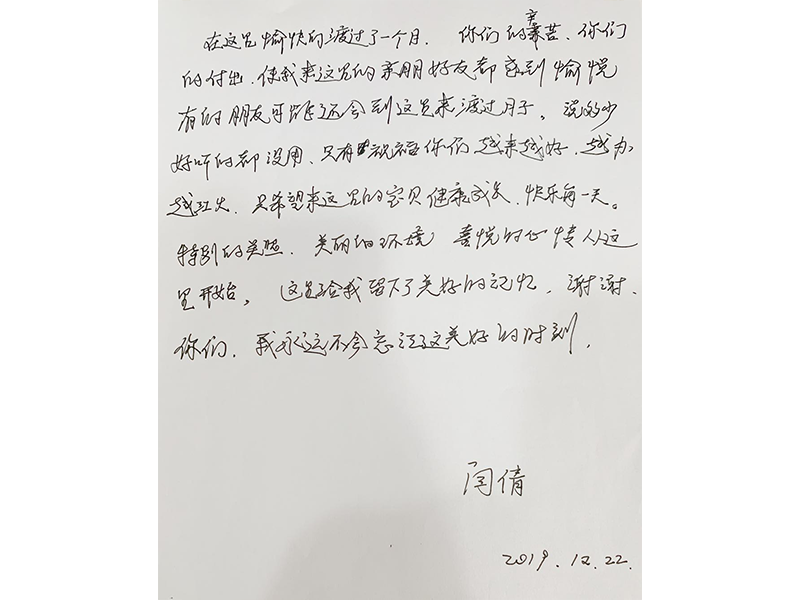 在这里愉快的渡过了一个月. 你们的辛苦.你们
的付出.使我来这里的亲朋好友都感到愉悦
有的朋友可能还会到这里来渡过月子。说多少
好听的都没用、只有祝福你们越来越好.越办
越红火.只希望来这里的宝贝健康成长.快乐每一天。
特别的关照.美丽的环境 喜悦的心情从这
里开始。 这里给我留下了美好的记忆.谢谢.
你们.我永远不会忘记这美好的时刻.
闫倩
2019.12.22.